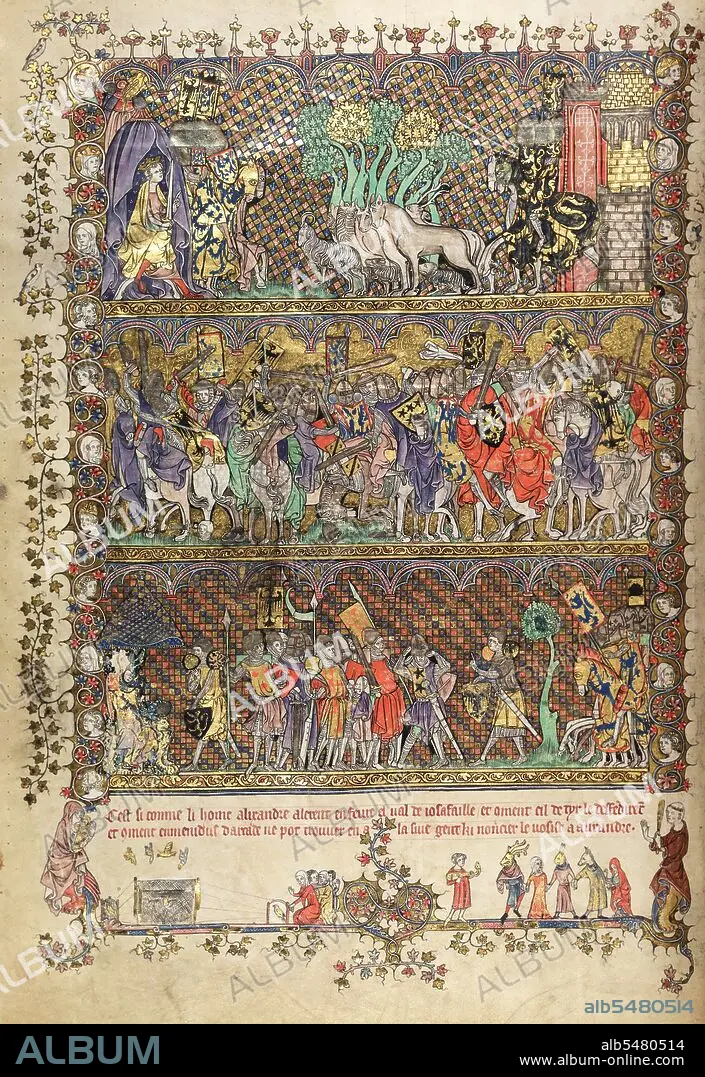 Cest si conme li home alixandre alerent en feurre el val de iosafaille et coment cil de tyr le deffendirẽt
et coment emmenidus darcade ne pot trouuer en la siue gent ki noncier le vosist a alixandre.
ALBUM
alb5480514
ALBUM
alb5480514
www.album-online.com